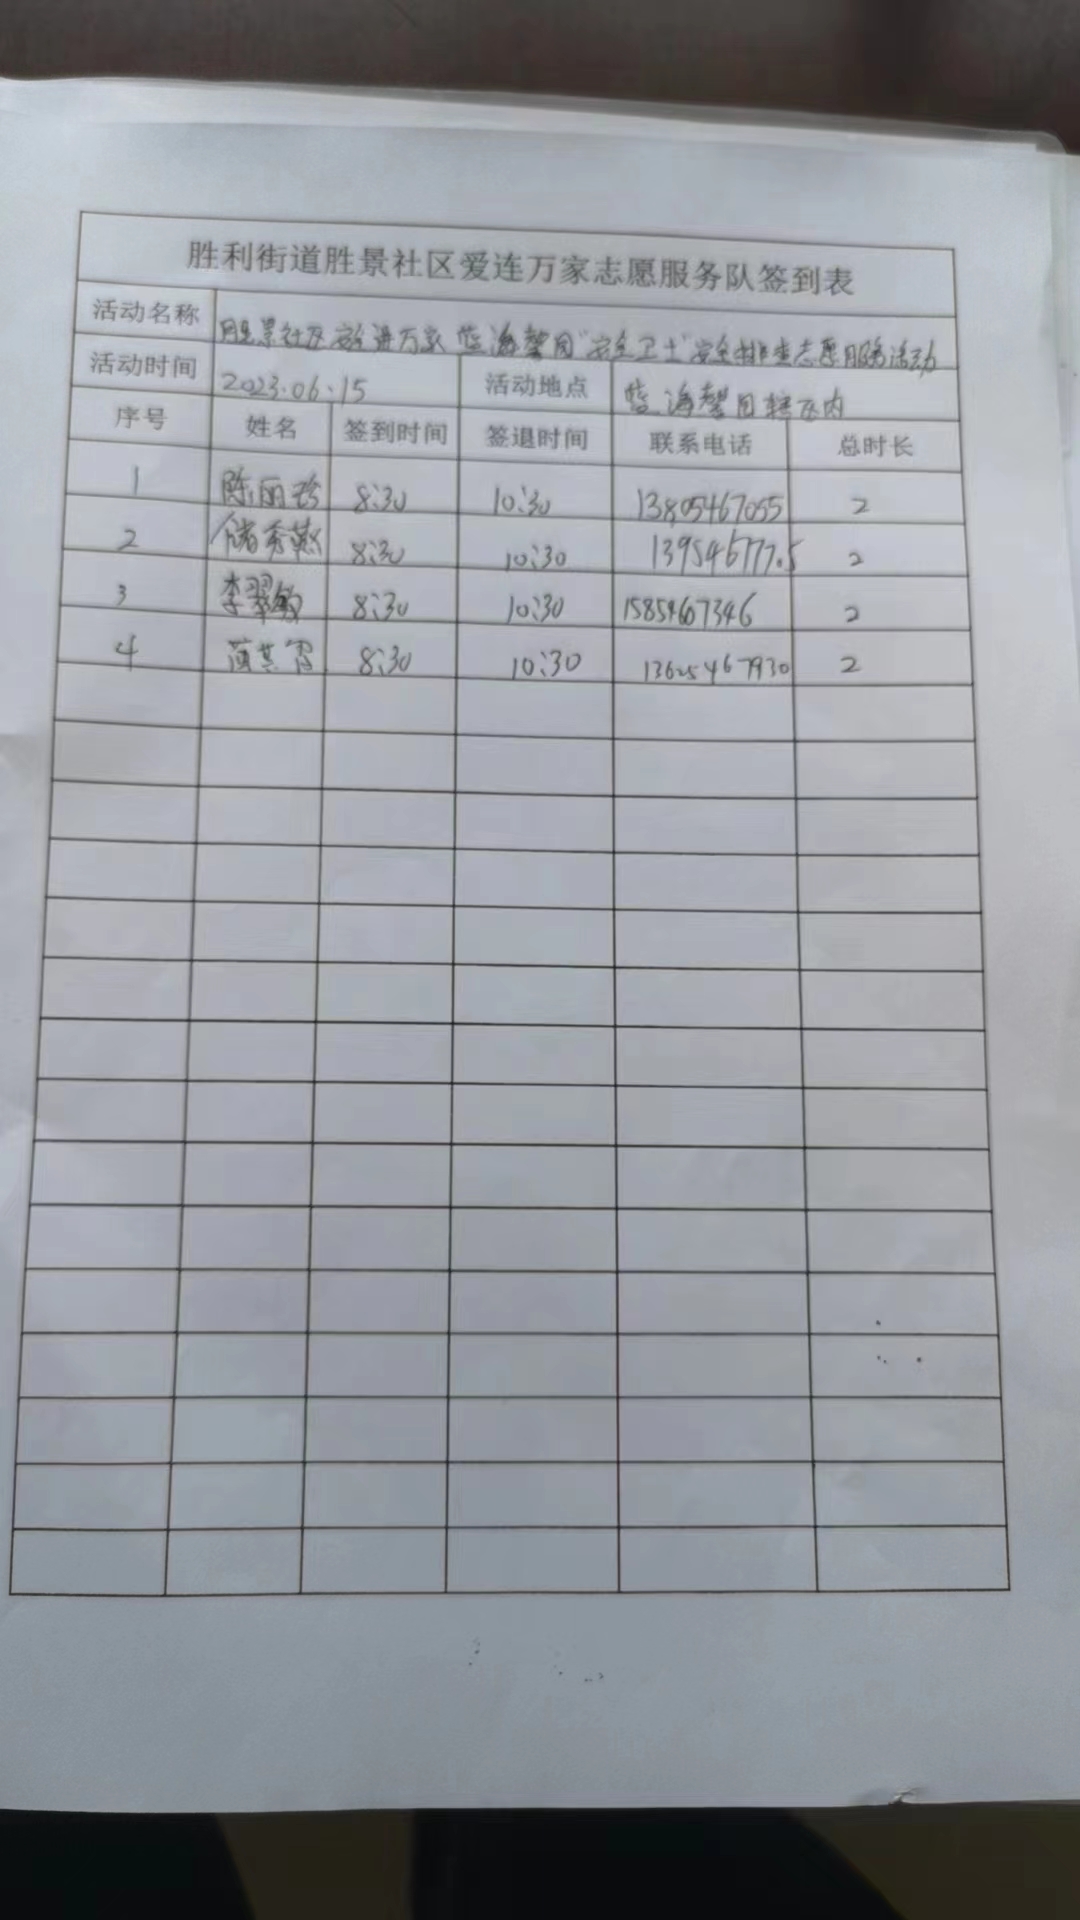 胜利街道胜景社区爱连万家志愿服务队签到表
活动名称 胜景社区 进万家 蓝海馨园"安全卫士"安全排查志愿服务活动
活动时间 2023.06.15 活动地点 蓝海馨园辖区内
序号 姓名 签到时间 签退时间 联系电话 总时长
1 陈丽珍 8:30 10:30 13805467055 2
2 储秀 8:30 10:30 2
3 李翠敏 8:30 10:30 15854667346 2
4 8:30 10:30 13625467930 2